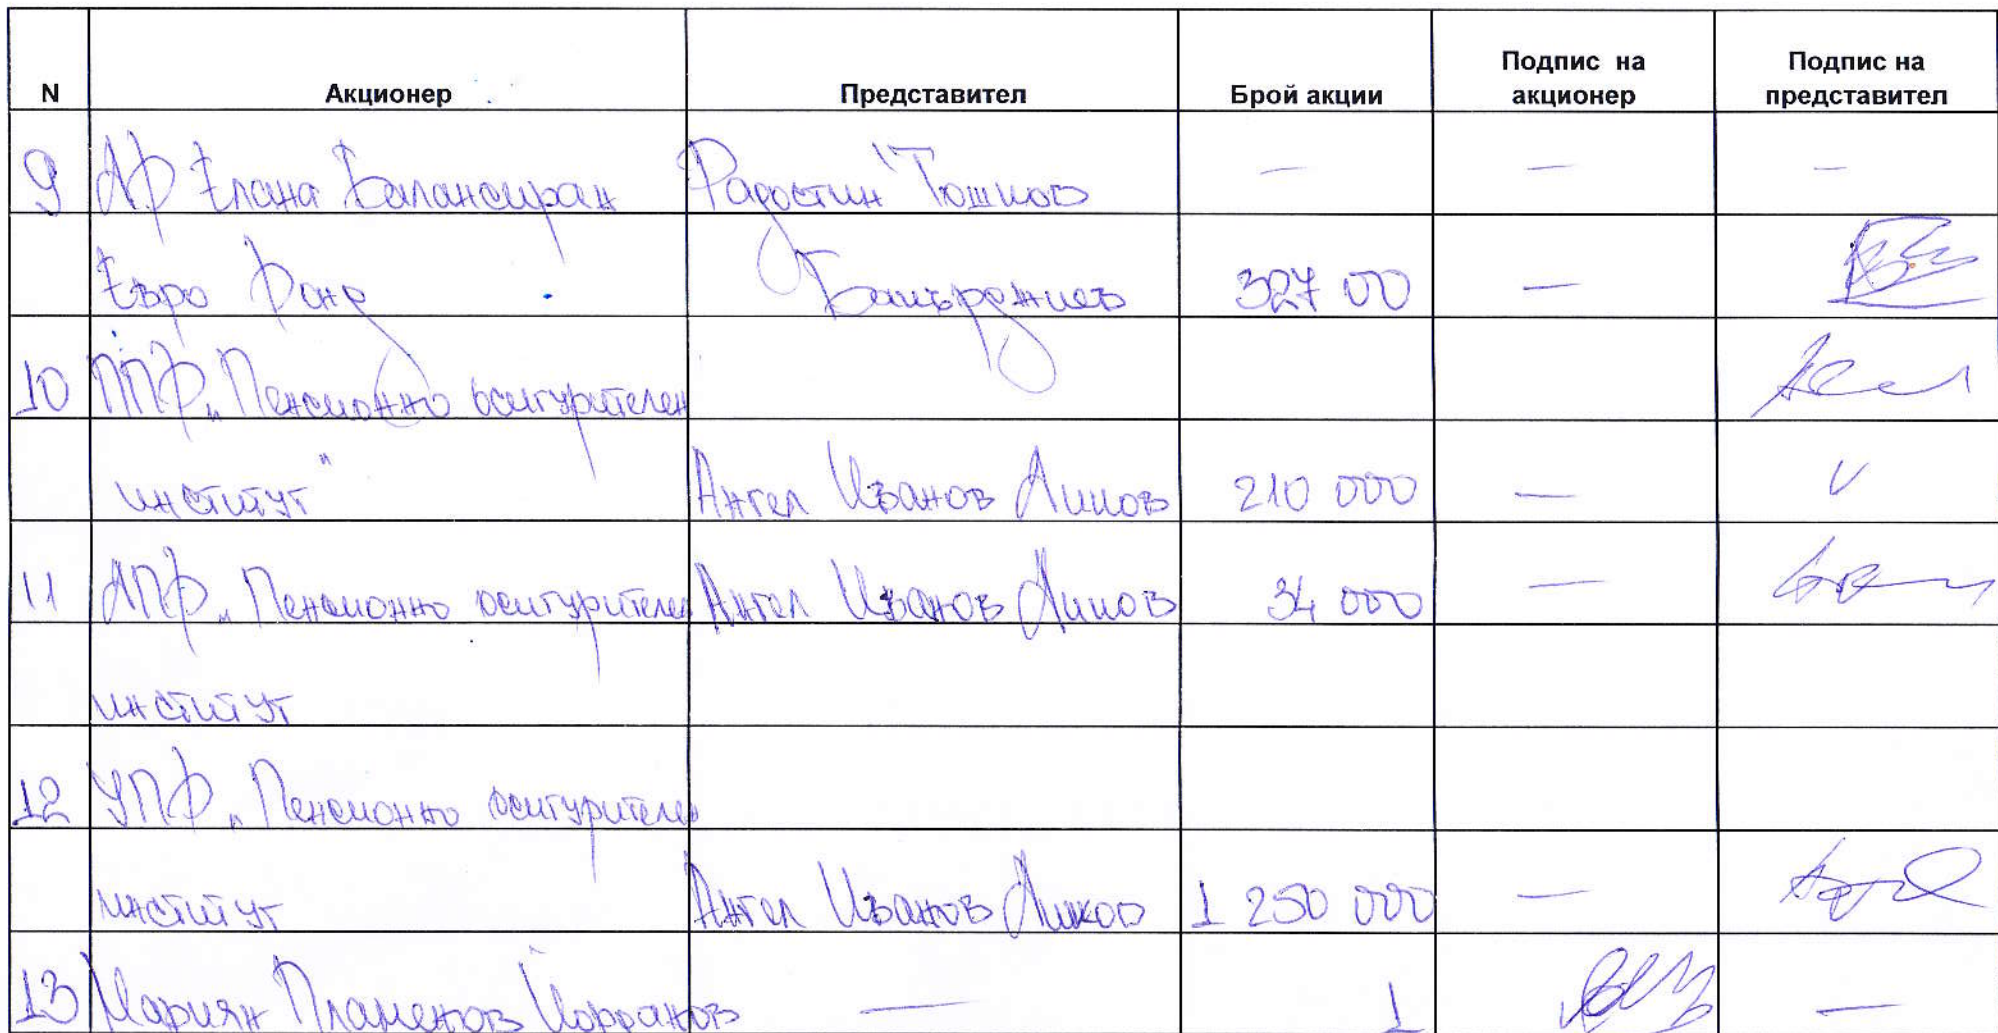 N Акционер Представител Брой акции Подпис на акционер Подпис на представител
9 ДФ Елана Балансиран Радостин Тошков — — —
Евро Фонд Бакърджиев 327 00 —
10 ППФ „Пенсионно осигурителен
институт" Ангел Иванов Липов 210 000 —
11 ДПФ „Пенсионно осигурителен Ангел Иванов Липов 34 000 —
институт
12 УПФ „Пенсионно осигурителен
институт Ангел Иванов 1 250 000 —
13 Мариян Пламенов Йорданов — 1 —